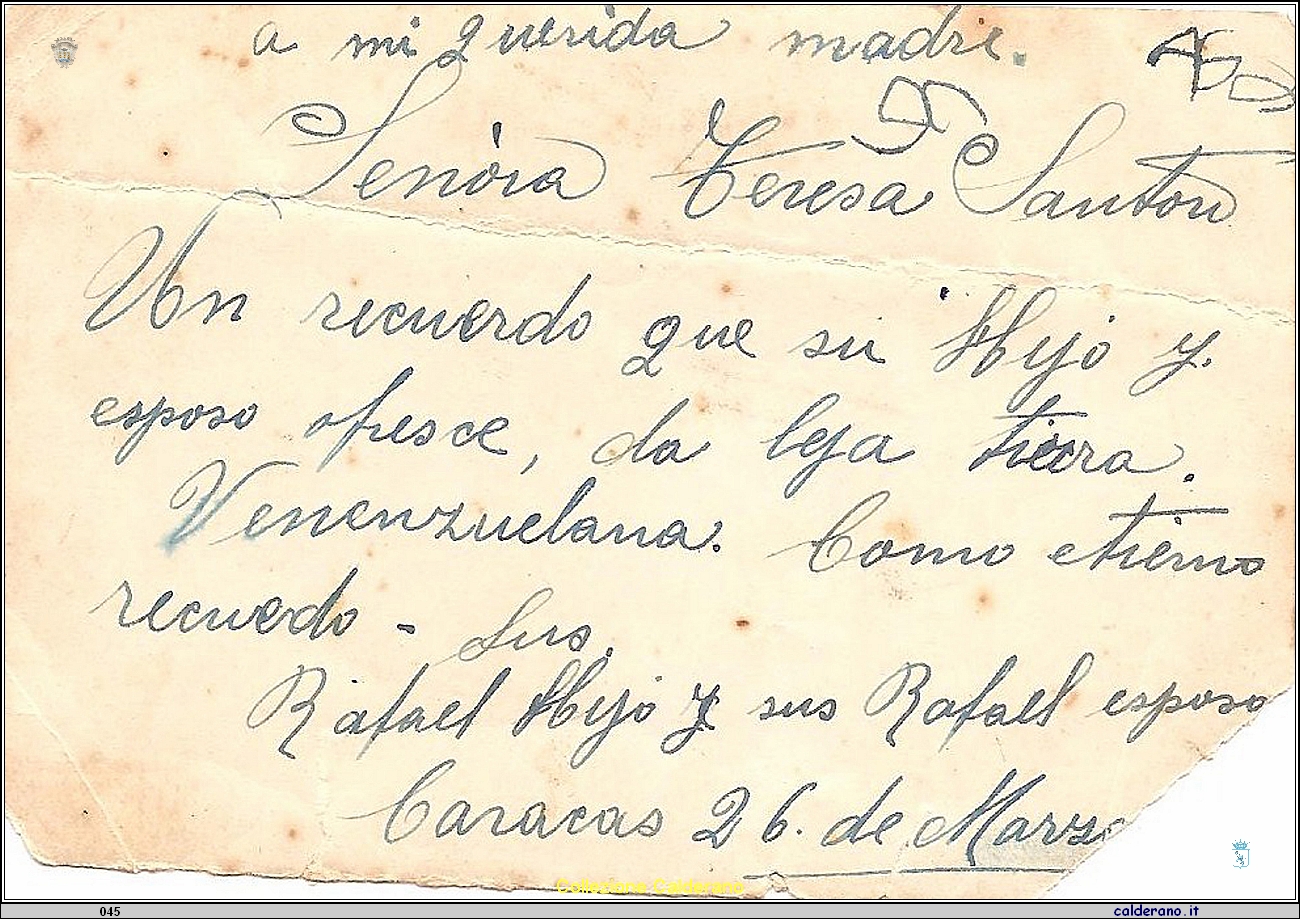 a mi querida madre.
Senòra Teresa Santoro
Un recuerdo que su Hijo y.
esposo ofresce, da leja tierra.
Venenzuelana. Como etierno
recuerdo - Sus.
Rafael Hijo y sus Rafael esposo
Caracas 26. de Marzo
Collezione Calderano
045
calderano.it